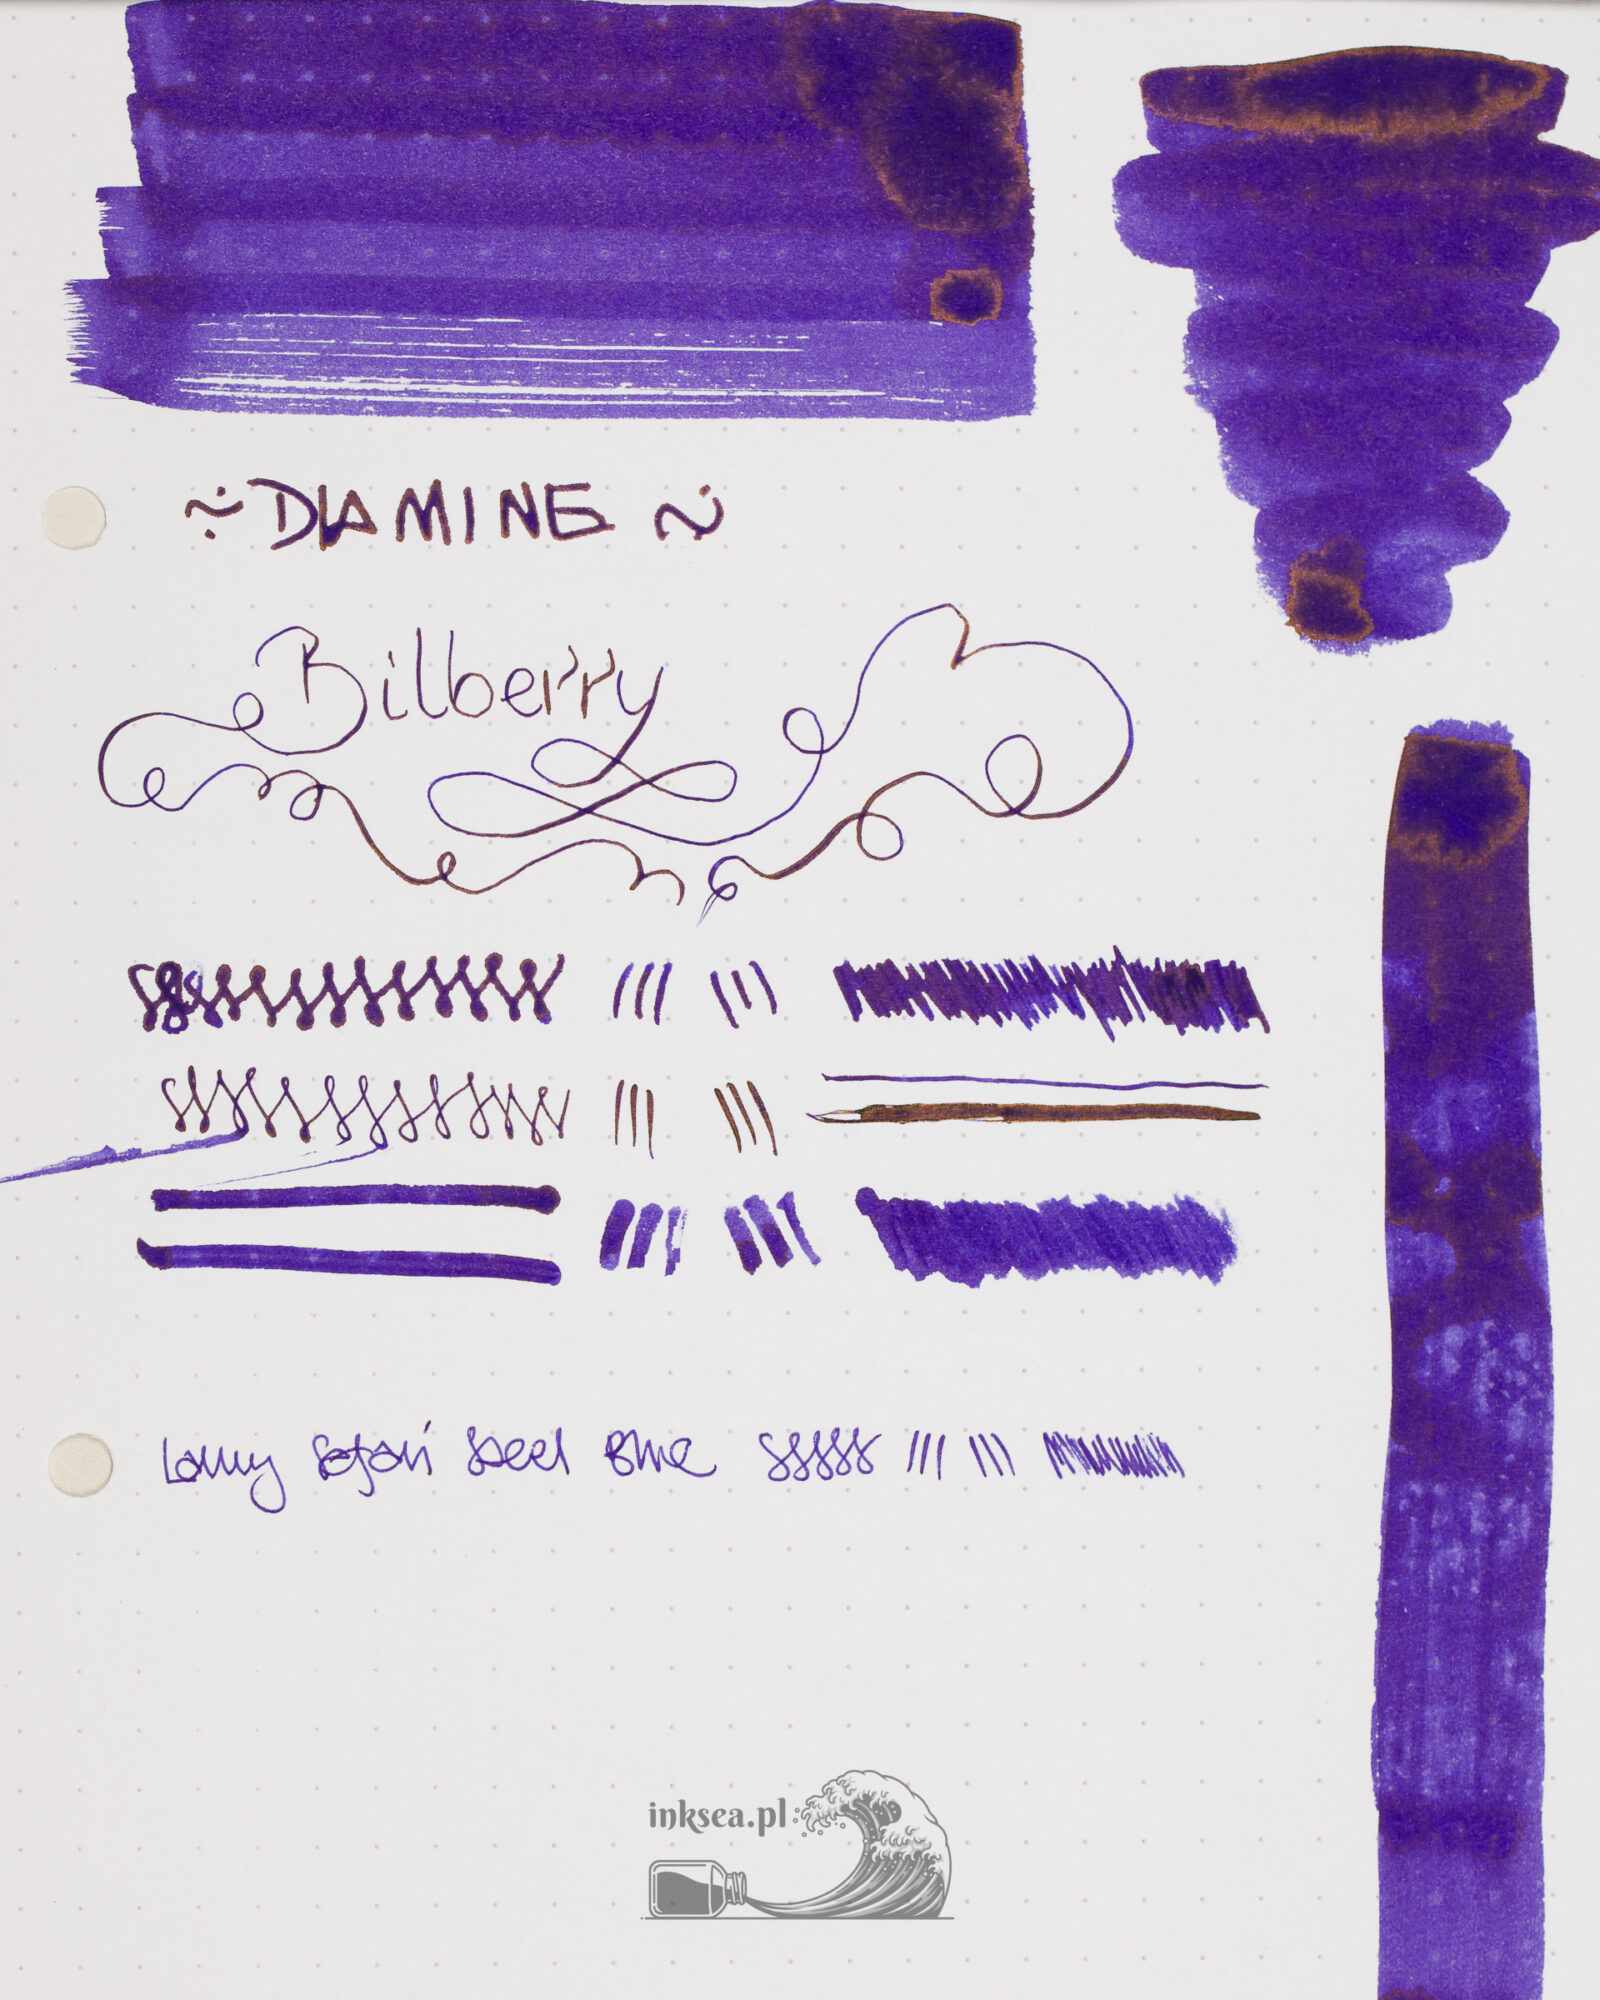 ~ DIAMINE ~
Bilberry
Lamy Safari Steel Blue
inksea.pl